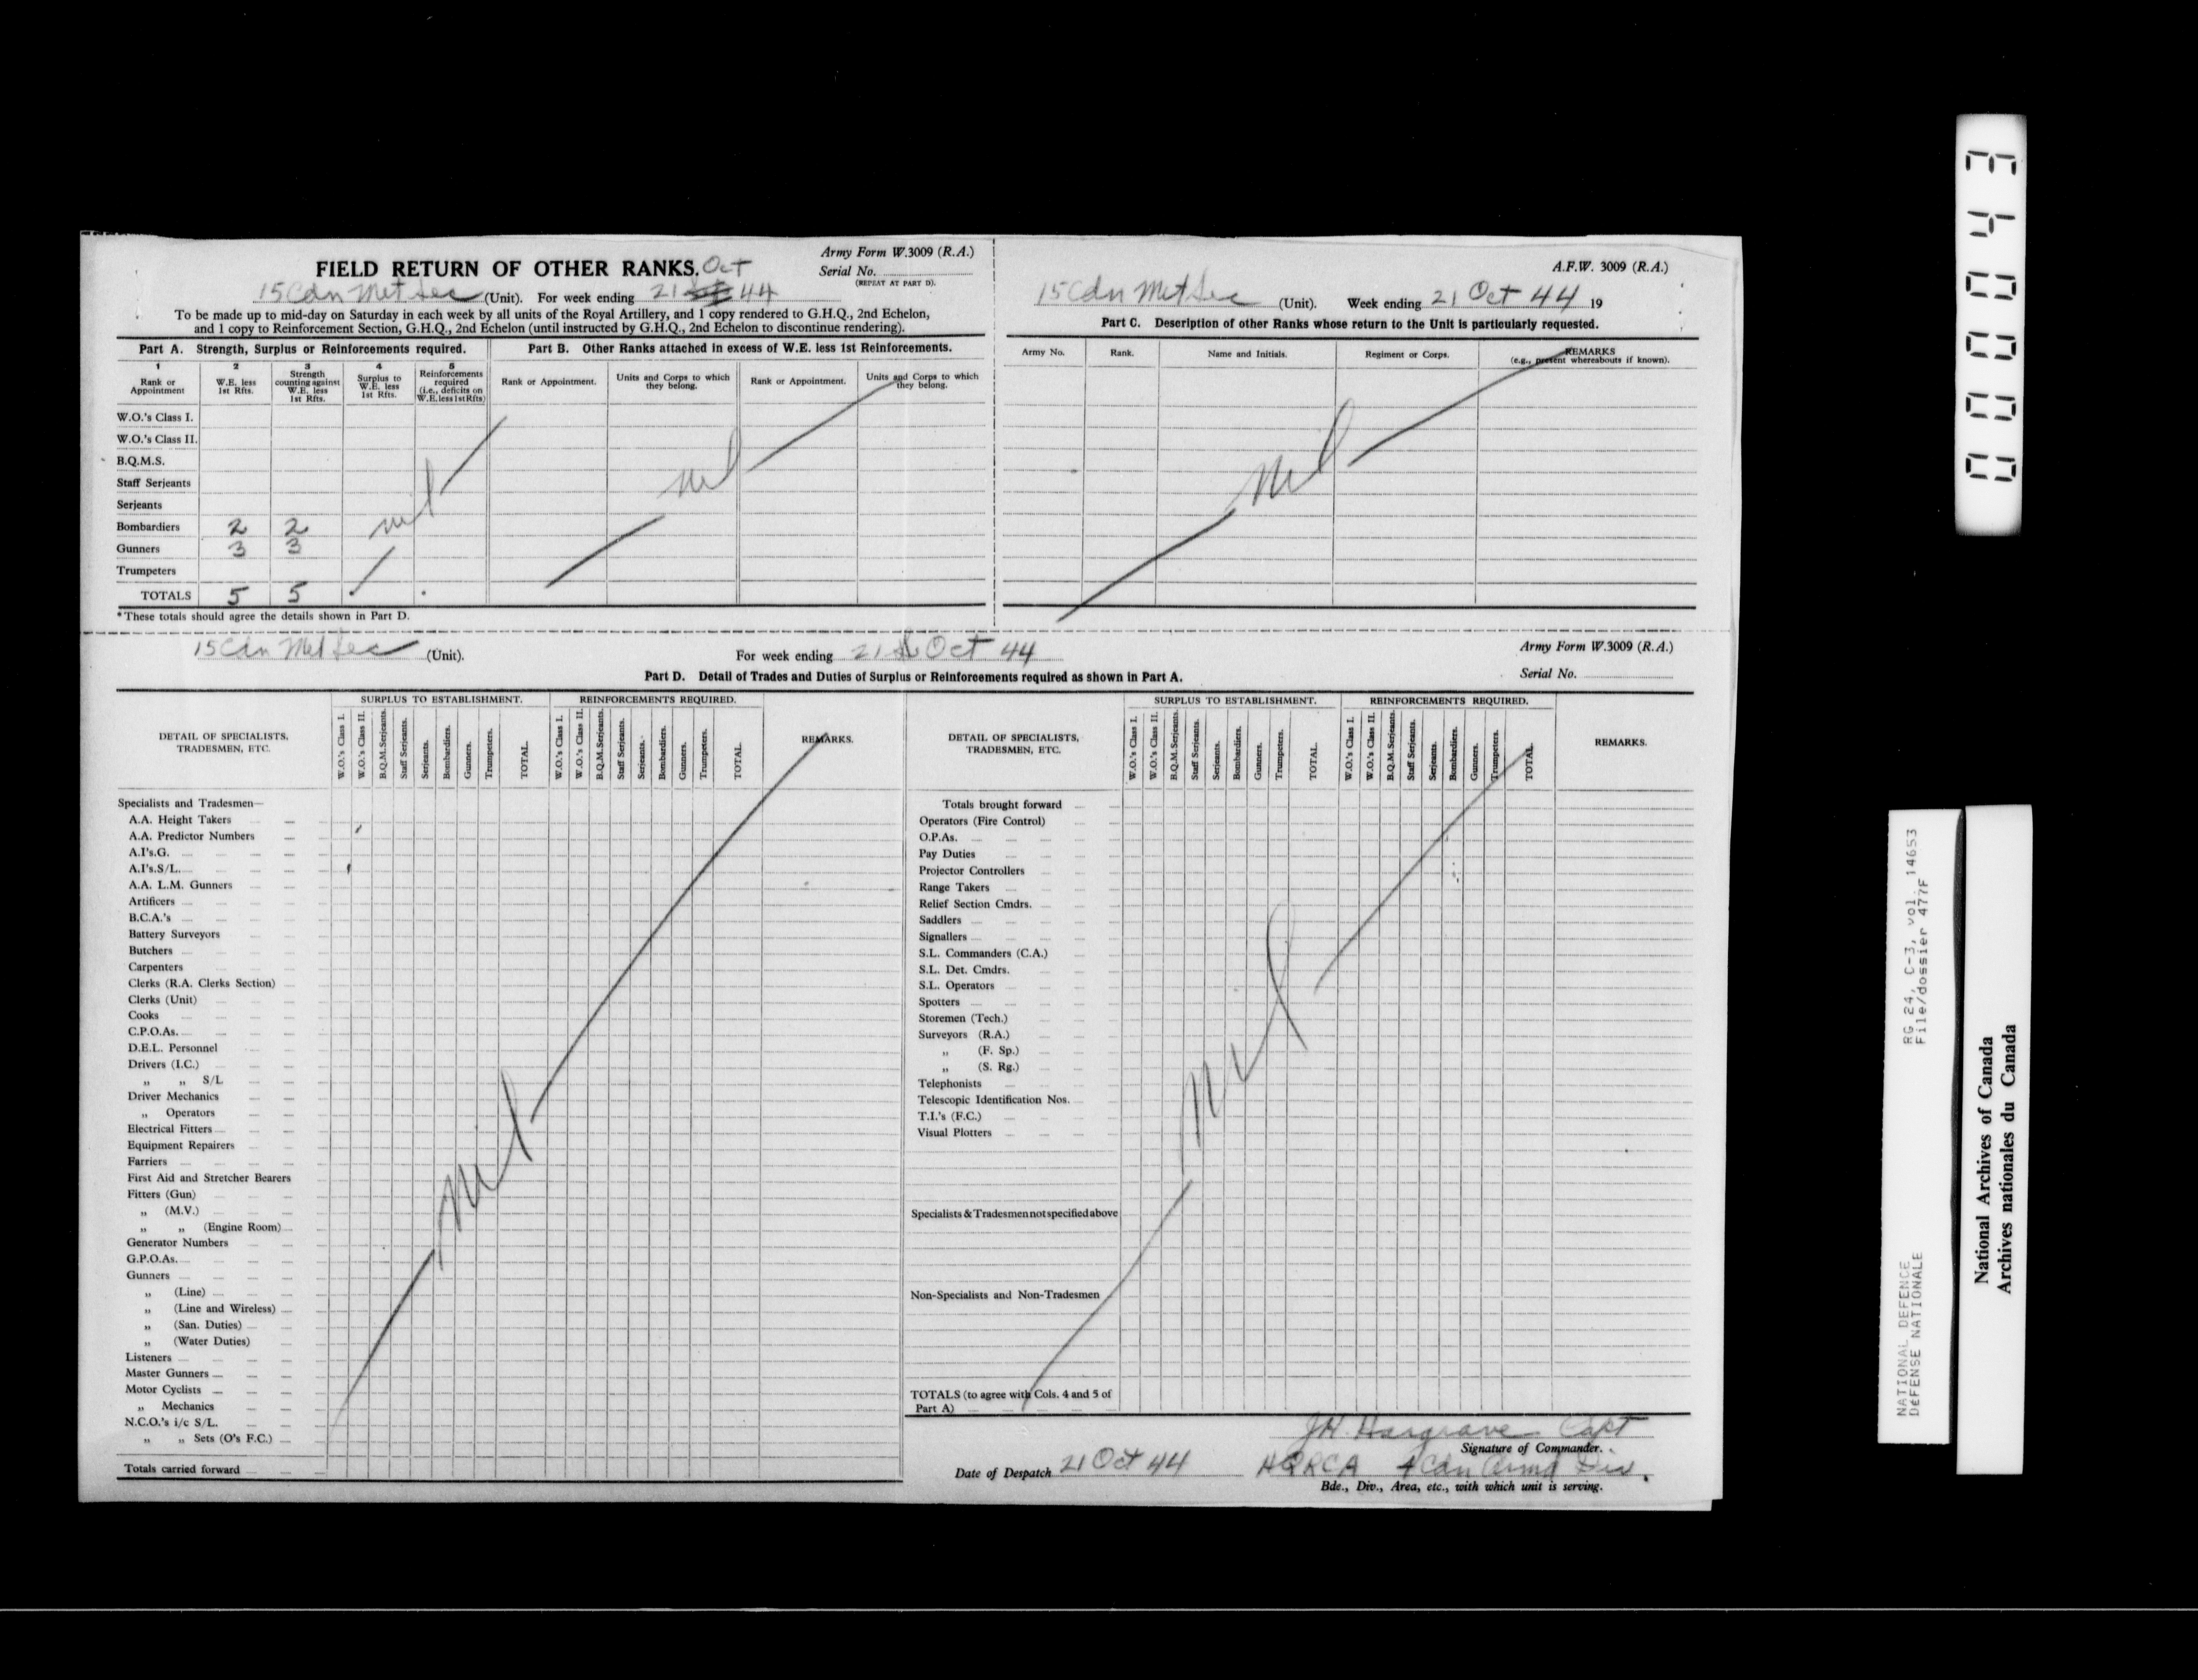 Army Form W.3009 (R.A.)
FIELD RETURN OF OTHER RANKS. Oct
Serial No.
(REPEAT AT PART D).
15 Cdn Met Sec (Unit). For week ending 21 44
To be made up to mid-day on Saturday in each week by all units of the Royal Artillery, and 1 copy rendered to G.H.Q., 2nd Echelon,
and 1 copy to Reinforcement Section, G.H.Q., 2nd Echelon (until instructed by G.H.Q., 2nd Echelon to discontinue rendering).
Part A. Strength, Surplus or Reinforcements required.
1 2 3 4 5
Rank or Appointment
W.E. less 1st Rfts.
Strength counting against W.E. less 1st Rfts.
Surplus to W.E. less 1st Rfts.
Reinforcements required (i.e., deficits on W.E. less 1st Rfts)
W.O.'s Class I.
W.O.'s Class II.
B.Q.M.S.
Staff Serjeants
Serjeants
nil
Bombardiers 2 2
Gunners 3 3
Trumpeters
TOTALS 5 5
*These totals should agree the details shown in Part D.
Part B. Other Ranks attached in excess of W.E. less 1st Reinforcements.
Rank or Appointment.
Units and Corps to which they belong.
Rank or Appointment.
Units and Corps to which they belong.
nil
A.F.W. 3009 (R.A.)
15 Cdn Met Sec (Unit). Week ending 21 Oct 44 19
Part C. Description of other Ranks whose return to the Unit is particularly requested.
Army No.
Rank.
Name and Initials.
Regiment or Corps.
REMARKS
(e.g., present whereabouts if known).
nil
15 Cdn Met Sec (Unit).
For week ending 21 Oct 44
Army Form W.3009 (R.A.)
Serial No.
Part D. Detail of Trades and Duties of Surplus or Reinforcements required as shown in Part A.
DETAIL OF SPECIALISTS, TRADESMEN, ETC.
SURPLUS TO ESTABLISHMENT.
W.O.'s Class I.
W.O.'s Class II.
B.Q.M.Serjeants.
Staff Serjeants.
Serjeants.
Bombardiers.
Gunners.
Trumpeters.
TOTAL.
REINFORCEMENTS REQUIRED.
W.O.'s Class I.
W.O.'s Class II.
B.Q.M.Serjeants.
Staff Serjeants.
Serjeants.
Bombardiers.
Gunners.
Trumpeters.
TOTAL
REMARKS.
Specialists and Tradesmen—
A.A. Height Takers
A.A. Predictor Numbers
A.I's.G.
A.I's.S/L.
A.A. L.M. Gunners
Artificers
B.C.A.'s
Battery Surveyors
Butchers
Carpenters
Clerks (R.A. Clerks Section)
Clerks (Unit)
Cooks
C.P.O.As.
D.E.L. Personnel
Drivers (I.C.)
„ „ S/L
Driver Mechanics
„ Operators
Electrical Fitters
Equipment Repairers
Farriers
First Aid and Stretcher Bearers
Fitters (Gun)
„ (M.V.)
„ „ (Engine Room)
Generator Numbers
G.P.O.As.
Gunners
„ (Line)
„ (Line and Wireless)
„ (San. Duties)
„ (Water Duties)
Listeners
Master Gunners
Motor Cyclists
„ Mechanics
N.C.O.'s i/c S/L.
„ „ Sets (O's F.C.)
Totals carried forward
nil
DETAIL OF SPECIALISTS, TRADESMEN, ETC.
SURPLUS TO ESTABLISHMENT.
W.O.'s Class I.
W.O.'s Class II.
B.Q.M.Serjeants.
Staff Serjeants.
Serjeants.
Bombardiers.
Gunners.
Trumpeters.
TOTAL.
REINFORCEMENTS REQUIRED.
W.O.'s Class I.
W.O.'s Class II.
B.Q.M.Serjeants.
Staff Serjeants.
Serjeants.
Bombardiers.
Gunners.
Trumpeters.
TOTAL.
REMARKS.
Totals brought forward
Operators (Fire Control)
O.P.As.
Pay Duties
Projector Controllers
Range Takers
Relief Section Cmdrs.
Saddlers
Signallers
S.L. Commanders (C.A.)
S.L. Det. Cmdrs.
S.L. Operators
Spotters
Storemen (Tech.)
Surveyors (R.A.)
„ (F. Sp.)
„ (S. Rg.)
Telephonists
Telescopic Identification Nos.
T.I.'s (F.C.)
Visual Plotters
Specialists & Tradesmen not specified above
Non-Specialists and Non-Tradesmen
TOTALS (to agree with Cols. 4 and 5 of
Part A)
nil
J H. Hargrave Capt
Signature of Commander.
Date of Despatch 21 Oct 44
HQRCA 4 Cdn Armd Div.
Bde., Div., Area, etc., with which unit is serving.
000043
NATIONAL DEFENCE RG 24, C-3, vol. 14653
DÉFENSE NATIONALE File/dossier 477F
National Archives of Canada
Archives nationales du Canada